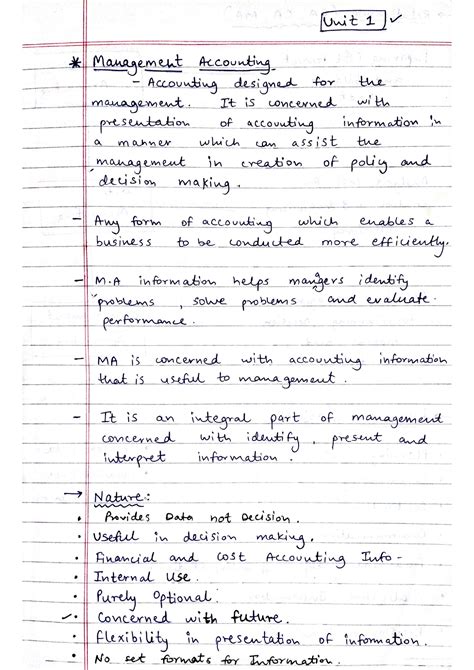 Unit 1
* Management Accounting
- Accounting designed for the
management. It is concerned with
presentation of accounting information in
a manner which can assist the
management in creation of policy and
decision making.
- Any form of accounting which enables a
business to be conducted more efficiently.
- M.A information helps mangers identify
problems, solve problems and evaluate
performance.
- MA is concerned with accounting information
that is useful to management.
- It is an integral part of management
concerned with identify, present and
interpret information.
→ Nature:
• Provides Data not Decision.
• Useful in decision making.
• Financial and Cost Accounting Info-
• Internal Use.
• Purely Optional.
• Concerned with future.
• Flexibility in presentation of information.
• No set formats for Information.